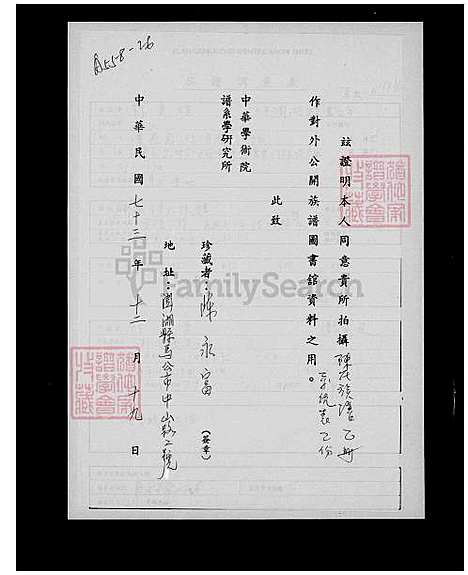 A558-26
茲證明本人同意貴所拍攝陳氏族譜乙冊
系統表乙份
作對外公開族譜圖書館資料之用。
此致
中華學術院
譜系學研究所
珍藏者：陳永富（簽章）
地址：澎湖縣馬公市中山路二號
中華民國七十三年十二月十九日
FamilySearch